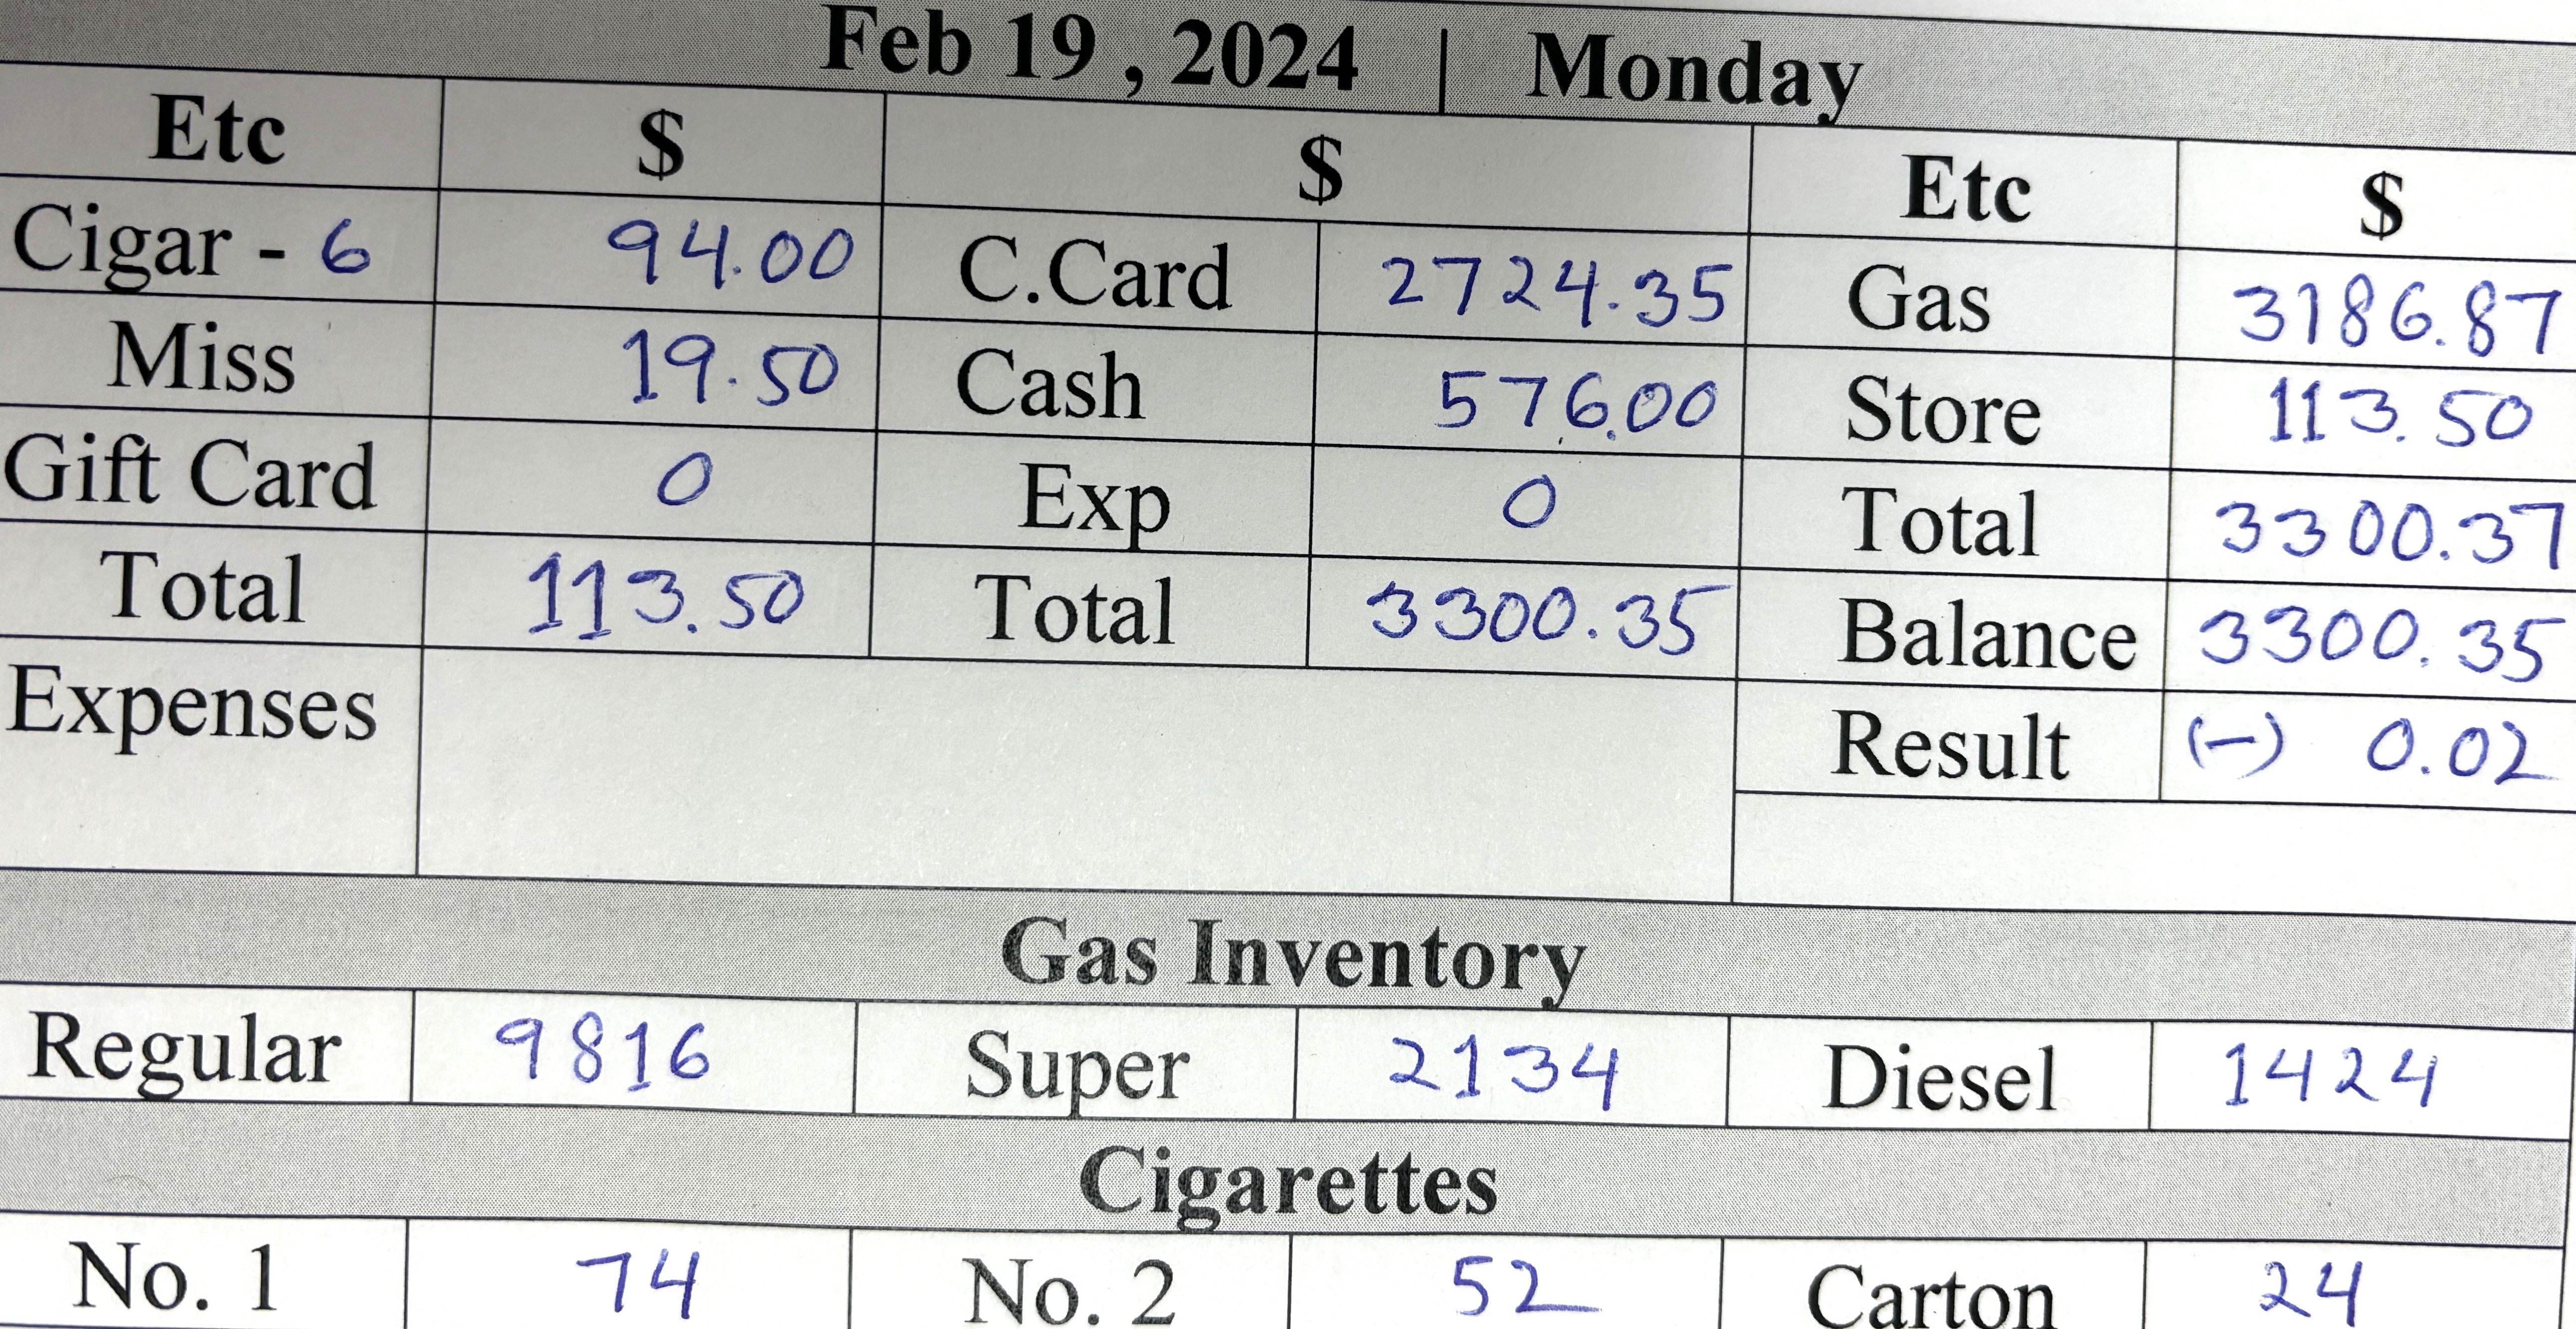 Feb 19 , 2024 | Monday
Etc $ $ Etc $
Cigar - 6 94.00 C.Card 2724.35 Gas 3186.87
Miss 19.50 Cash 576.00 Store 113.50
Gift Card 0 Exp 0 Total 3300.37
Total 113.50 Total 3300.35 Balance 3300.35
Expenses Result (-) 0.02
Gas Inventory
Regular 9816 Super 2134 Diesel 1424
Cigarettes
No. 1 74 No. 2 52 Carton 24